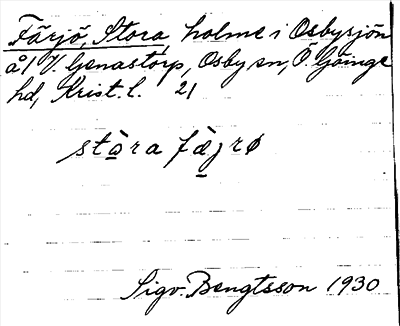 Färjö, Stora, holme i Osbysjön
å/ V. Genastorp, Osby sn, Ö. Göinge
hd, Krist. l. 21
stàra fæ̀jrø
Sigv. Bengtsson 1930